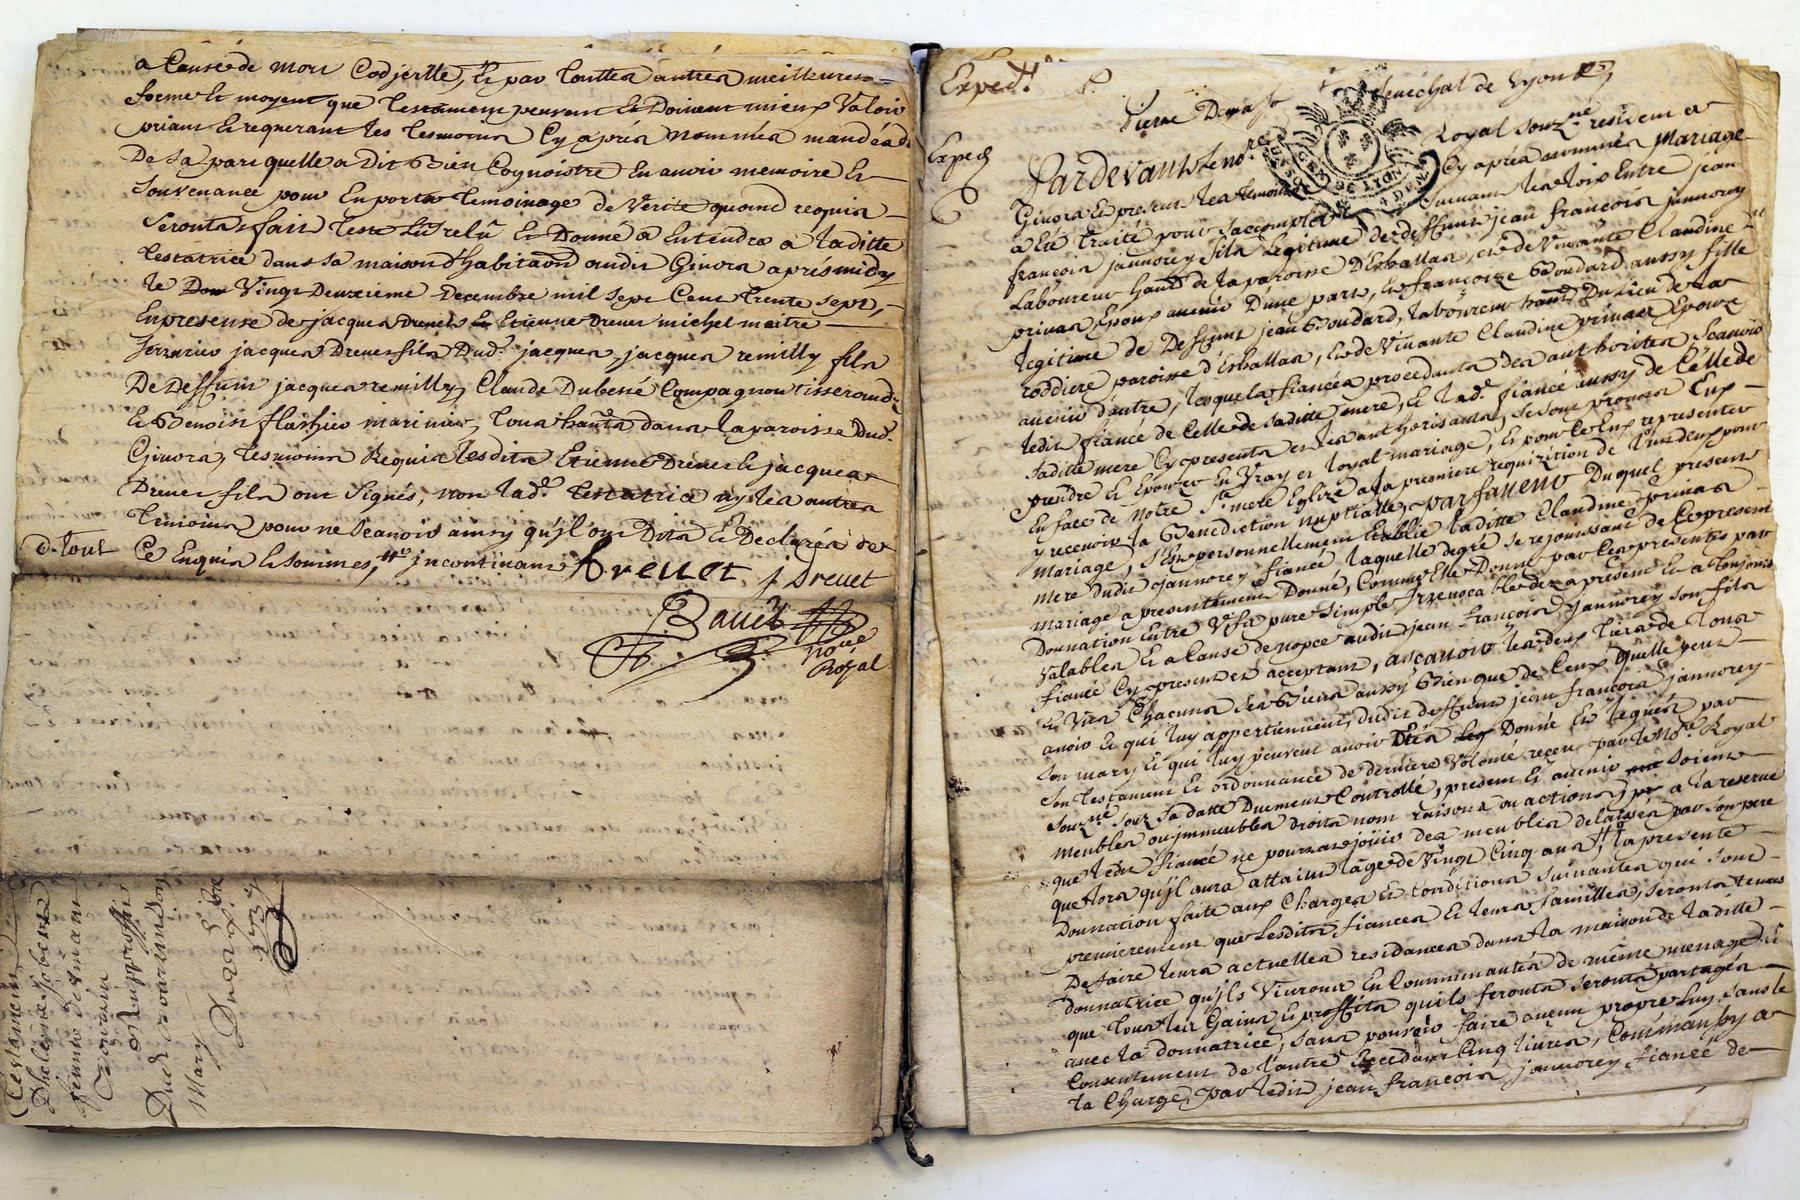 a Cause de mort Codicille, Et par touttes autres meilleures
forme Et moyent que testament peuvent Et Doivent mieux Valoir
priant Et requerant les tesmoins Cy apres nommés mandés
De sa part quelle a dit Bien Cognoistre En avoir memoire Et
souvenance pour En porter temoinage de Verité quand requis
seronts, fait leu relu Et Donné a Entendre a laditte
testatrice dans sa maison d'habitaon audit Givors apres midy
le Vingt Deuxieme decembre mil sept Cent trente sept,
En presense de jacques Drevet Etienne Drevet michel maitre
serrurier jacques Drevet fils Dud. jacques, jacques remilly fils
De Deffunt jacques remilly, Claude Dubessé Compagnon tisserand
Et Benoist flashier marinier, tous hants dans la paroisse Dud.
Givors, tesmoins Requis lesdits Etienne Drevet Et jacques
Drevet fils ont signés, non lade testatrice ny les autres
temoins pour ne scavoir ainsy qu'jl ont Dits Et Declarés de
Ce Enquis Et sommés, jncontinant
d. tout
Drevet j Drevet
Royal
Testament
femme
1737
Exped.
senechal de Lyon
Exped
Pardevant le no.re Royal souz.ne resident a
Givors Et present les temoins Cy apres nommés Mariage
a Eté traité pour s'accomplir suivant les loix Entre jean
françois jannorey fils Legitime de deffunt jean françois jannorey
Laboureur hant de la paroisse D'Eshallas, et de Vivante Claudine
privas Epoux avenir D'une part, Et françoize Goudard aussy fille
legitime de Deffunt jean Goudard, laboureur hant Du lieu de la
roddiere paroisse d'Eshallas, Et de Vivante Claudine privas Epouze
avenir d'autre, lesquels fiancés procedants des authorités, scavoir
ledit fiancé de Celle de saditte mere, Et lad. fiancé aussy de Celle de
saditte mere Cy presentes Et les authorisants, se sont promis Eux
prendre Et Epouzer En Vray et loyal mariage, Et pour Ce Eux representer
En face de notre S.te mere Eglize a la premiere requizition de l'un deux pour
y recevoir la Benediction nuptialle, parfaveur Duquel present
mariage, s'est personnellement Establie laditte Claudine privas
mere dudit jannorey fiancé, laquelle degré se rejouissant de Ce present
mariage a presentement Donné, Comme Elle Donne par Ces presentes par
Donnation Entre Vifs pure simple jrrevocable dez a present Et a toujours
Valables Et a Cause de nopce audit jean françois jannorey son fils
fiancé Cy present et acceptant, ascavoir les deux tiers de tous
Et Uns Chacuns ses Biens aussy Bien que de Ceux quelle peut
avoir Et qui luy appertiennent, dudit deffunt jean françois jannorey
son mary Et qui luy peuvent avoir Etés Donné Et legués par
son testament Et ordonnance de derniere Volonté receu par le No.re Royal
souz.né souz sa datte Duement Controllé, present Et avenir soient
meubles ou jmmeubles droits nom raisons ou actions, a la reserve
que ledit fiancé ne pourra jouir des meubles delaissés par son pere
que lors qu'jl aura attaint l'âge de Vingt Cinq ans, la presente
Donnation faite aux Charges Et Conditions suivantes qui sont
premierement que lesdits fiances Et leurs familles, seronts tenus
De faire leurs actuelles residances dans la maison de laditte
donnatrice qu'jls Vivront En Communautés de même menage
que tous leur Gains Et proffits qu'ils feronts seronts partagés
avec la donnatrice, sans pouvoir faire aucun propre luy sans le
Consentement de l'autre Excedant Cinq livres, Comm'aussy a
la Charge, par ledit jean françois jannorey fiancé de